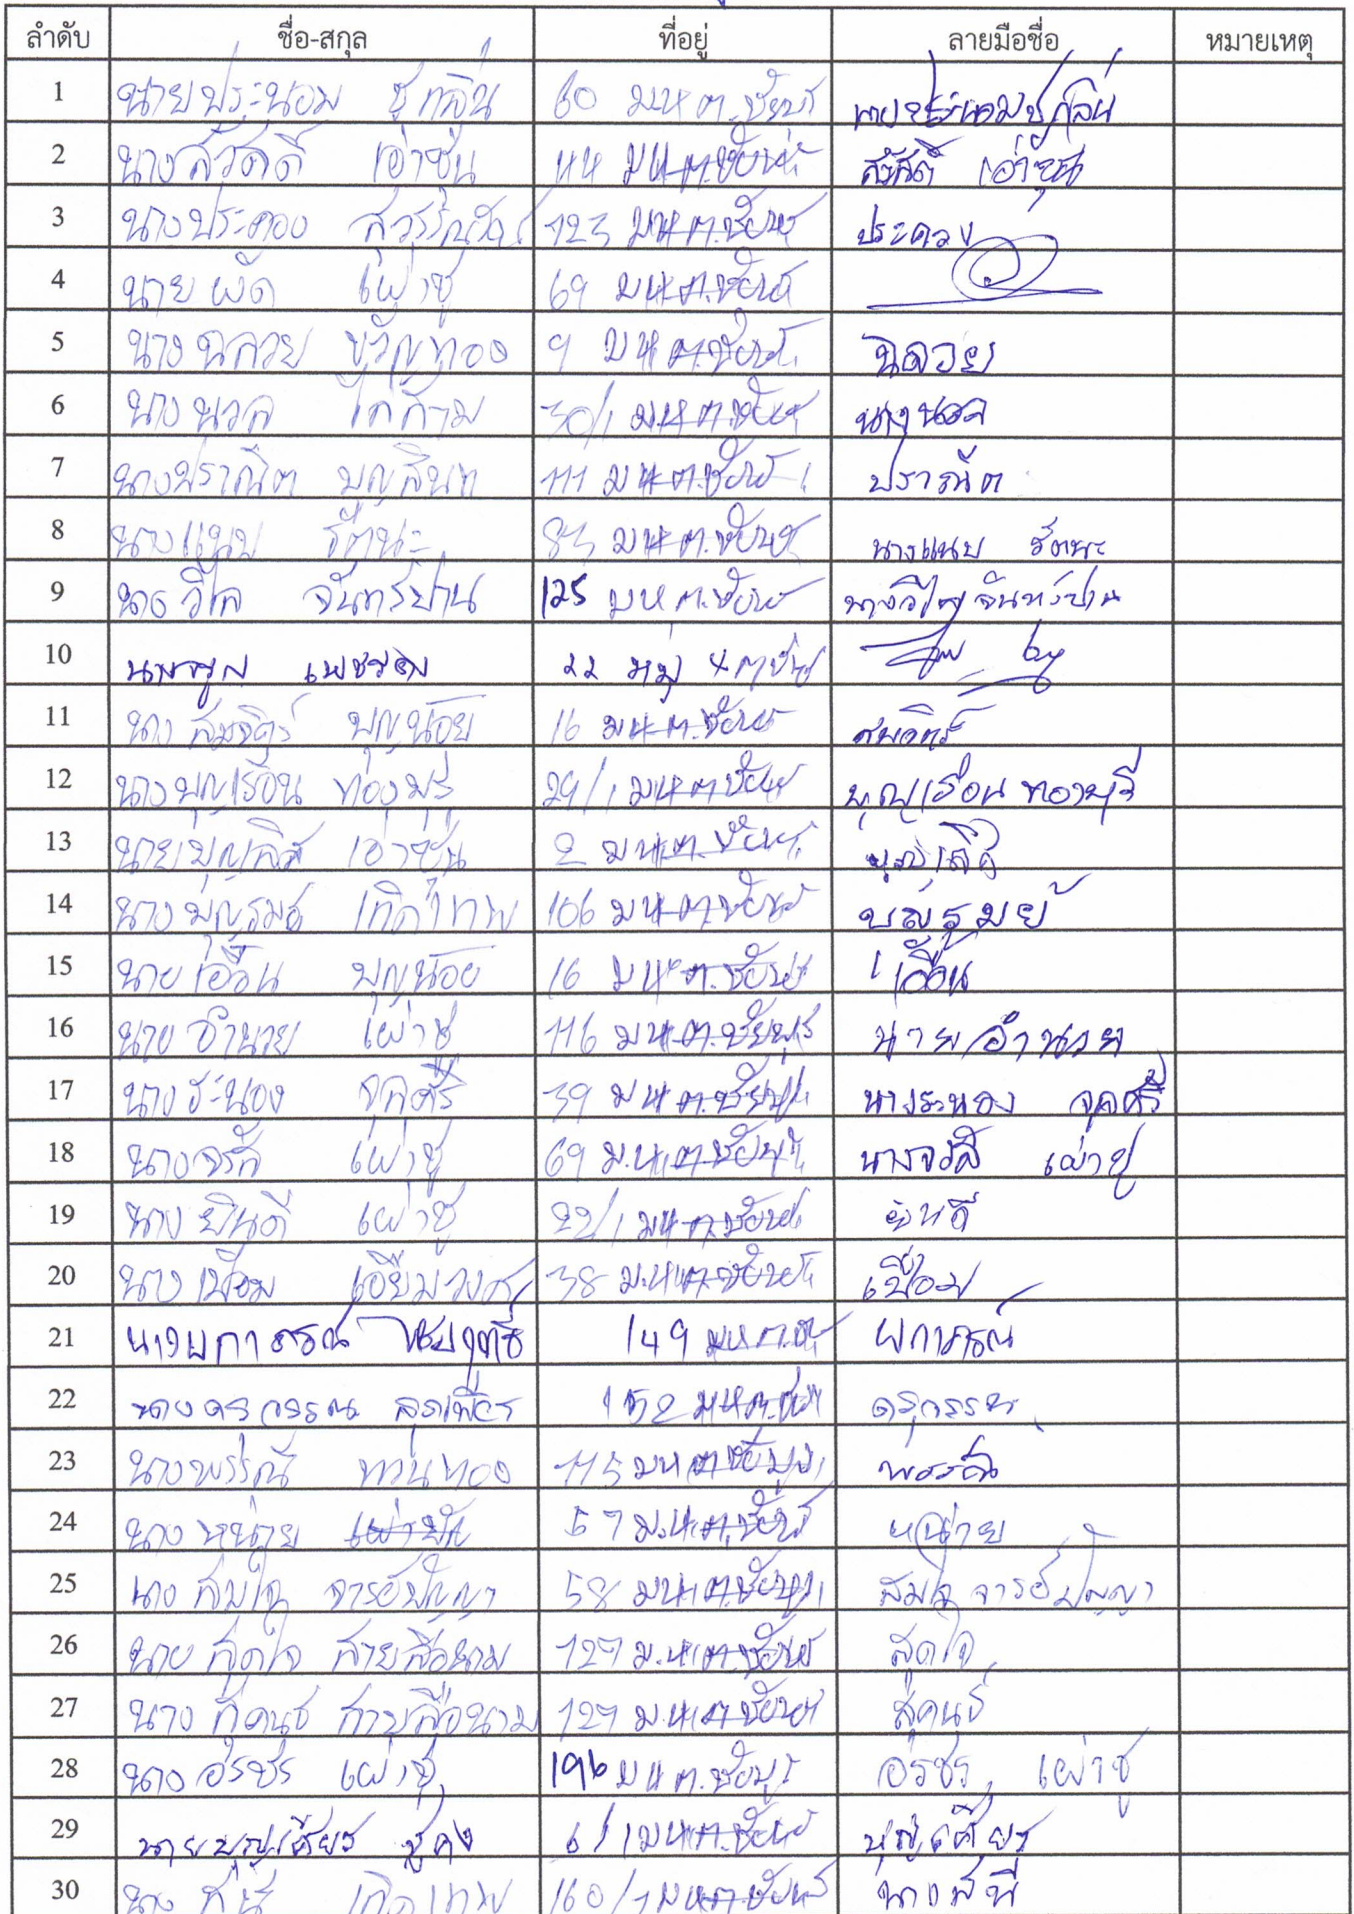 ลำดับ ชื่อ-สกุล ที่อยู่ ลายมือชื่อ หมายเหตุ
1 นายประนอม ชูกลิ่น 60 ม.4 ต.ชัยบุรี นายประนอม ชูกลิ่น
2 นางสวัสดิ์ เอ่าซุ่น 44 ม.4 ต.ชัยบุรี สวัสดิ์ เอ่าซุ่น
3 นางประคอง 123 ม.4 ต.ชัยบุรี ประคอง
4 นาย เผ่าชู 69 ม.4 ต.ชัยบุรี
5 นางฉลวย ขวัญทอง 9 ม.4 ต.ชัยบุรี ฉลวย
6 นางนวล 30/1 ม.4 ต.ชัยบุรี นางนวล
7 นางปราณีต บุญสินท 111 ม.4 ต.ชัยบุรี ปราณีต
8 นางแนบ รัตนะ 83 ม.4 ต.ชัยบุรี นางแนบ รัตนะ
9 นางวิไล จันทร์ปาน 125 ม.4 ต.ชัยบุรี นางวิไล จันทร์ปาน
10 22 หมู่ 4 ต.ชัยบุรี
11 นางสมจิตร์ บุญน้อย 16 ม.4 ต.ชัยบุรี สมจิตร์
12 นางบุญเรือน ทองบุรี 29/1 ม.4 ต.ชัยบุรี บุญเรือน ทองบุรี
13 นายบุญเลิศ เอ่าซุ่น 2 ม.4 ต.ชัยบุรี บุญเลิศ
14 เกิดเทพ 106 ม.4 ต.ชัยบุรี
15 นายเอื้อน บุญน้อย 16 ม.4 ต.ชัยบุรี เอื้อน
16 นายอำนวย เผ่าชู 116 ม.4 ต.ชัยบุรี นายอำนวย
17 นางระนอง จุลศรี 39 ม.4 ต.ชัยบุรี นางระนอง จุลศรี
18 นางจรัส เผ่าชู 69 ม.4 ต.ชัยบุรี นางจรัส เผ่าชู
19 นางยินดี เผ่าชู 22/1 ม.4 ต.ชัยบุรี ยินดี
20 นางเปื้อม เอียบวงศ์ 38 ม.4 ต.ชัยบุรี เปื้อม
21 นางผกาภรณ์ 149 ม.4 ต.ชัย ผกาภรณ์
22 152 ม.4 ต.ชัย
23 นางพรรณี ทวนทอง 115 ม.4 ต.ชัยบุรี พรรณี
24 นางหน่าย 57 ม.4 ต.ชัยบุรี หน่าย
25 นางสมใจ จารย์ปัญญา 58 ม.4 ต.ชัยบุรี สมใจ จารย์ปัญญา
26 นายสุดใจ สายสือนาม 127 ม.4 ต.ชัยบุรี สุดใจ
27 นางสุคนธ์ สายสือนาม 127 ม.4 ต.ชัยบุรี สุคนธ์
28 นางอรชร เผ่าชู 196 ม.4 ต.ชัยบุรี อรชร เผ่าชู
29 นายบุญเสียร ชูคง 6/1 ม.4 ต.ชัยบุรี บุญเสียร
30 นาง เกิดเทพ 160/1 ม.4 ต.ชัยบุรี